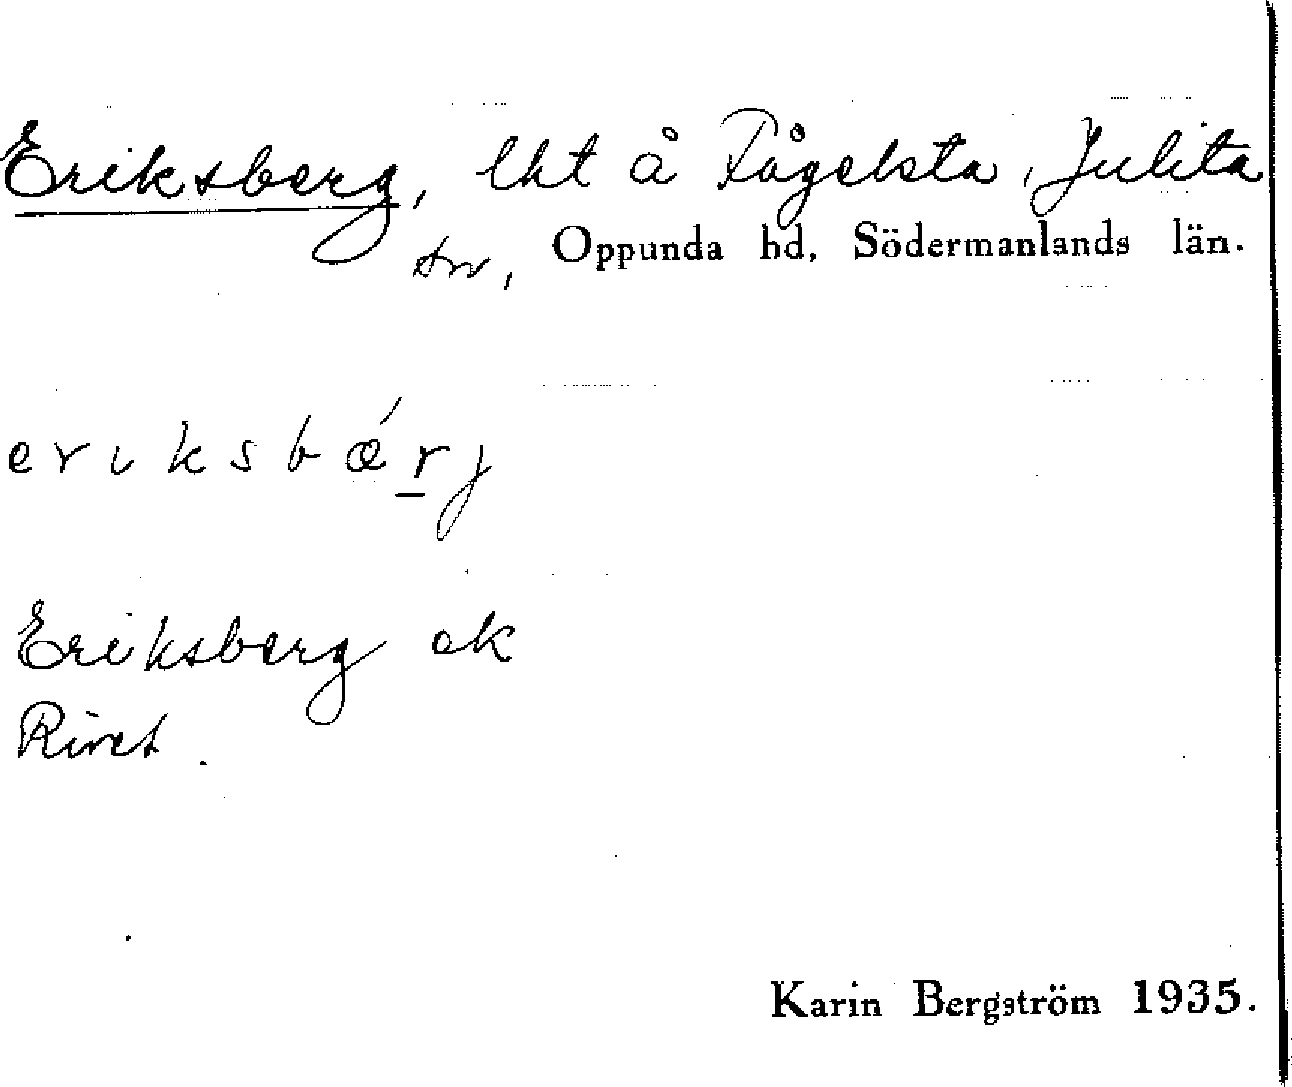 Eriksberg, lht å Fågelsta, Julita
sn, Oppunda hd, Södermanlands län.
eriksbǽr̲j
Eriksberg ek
Rivet.
Karin Bergström 1935.